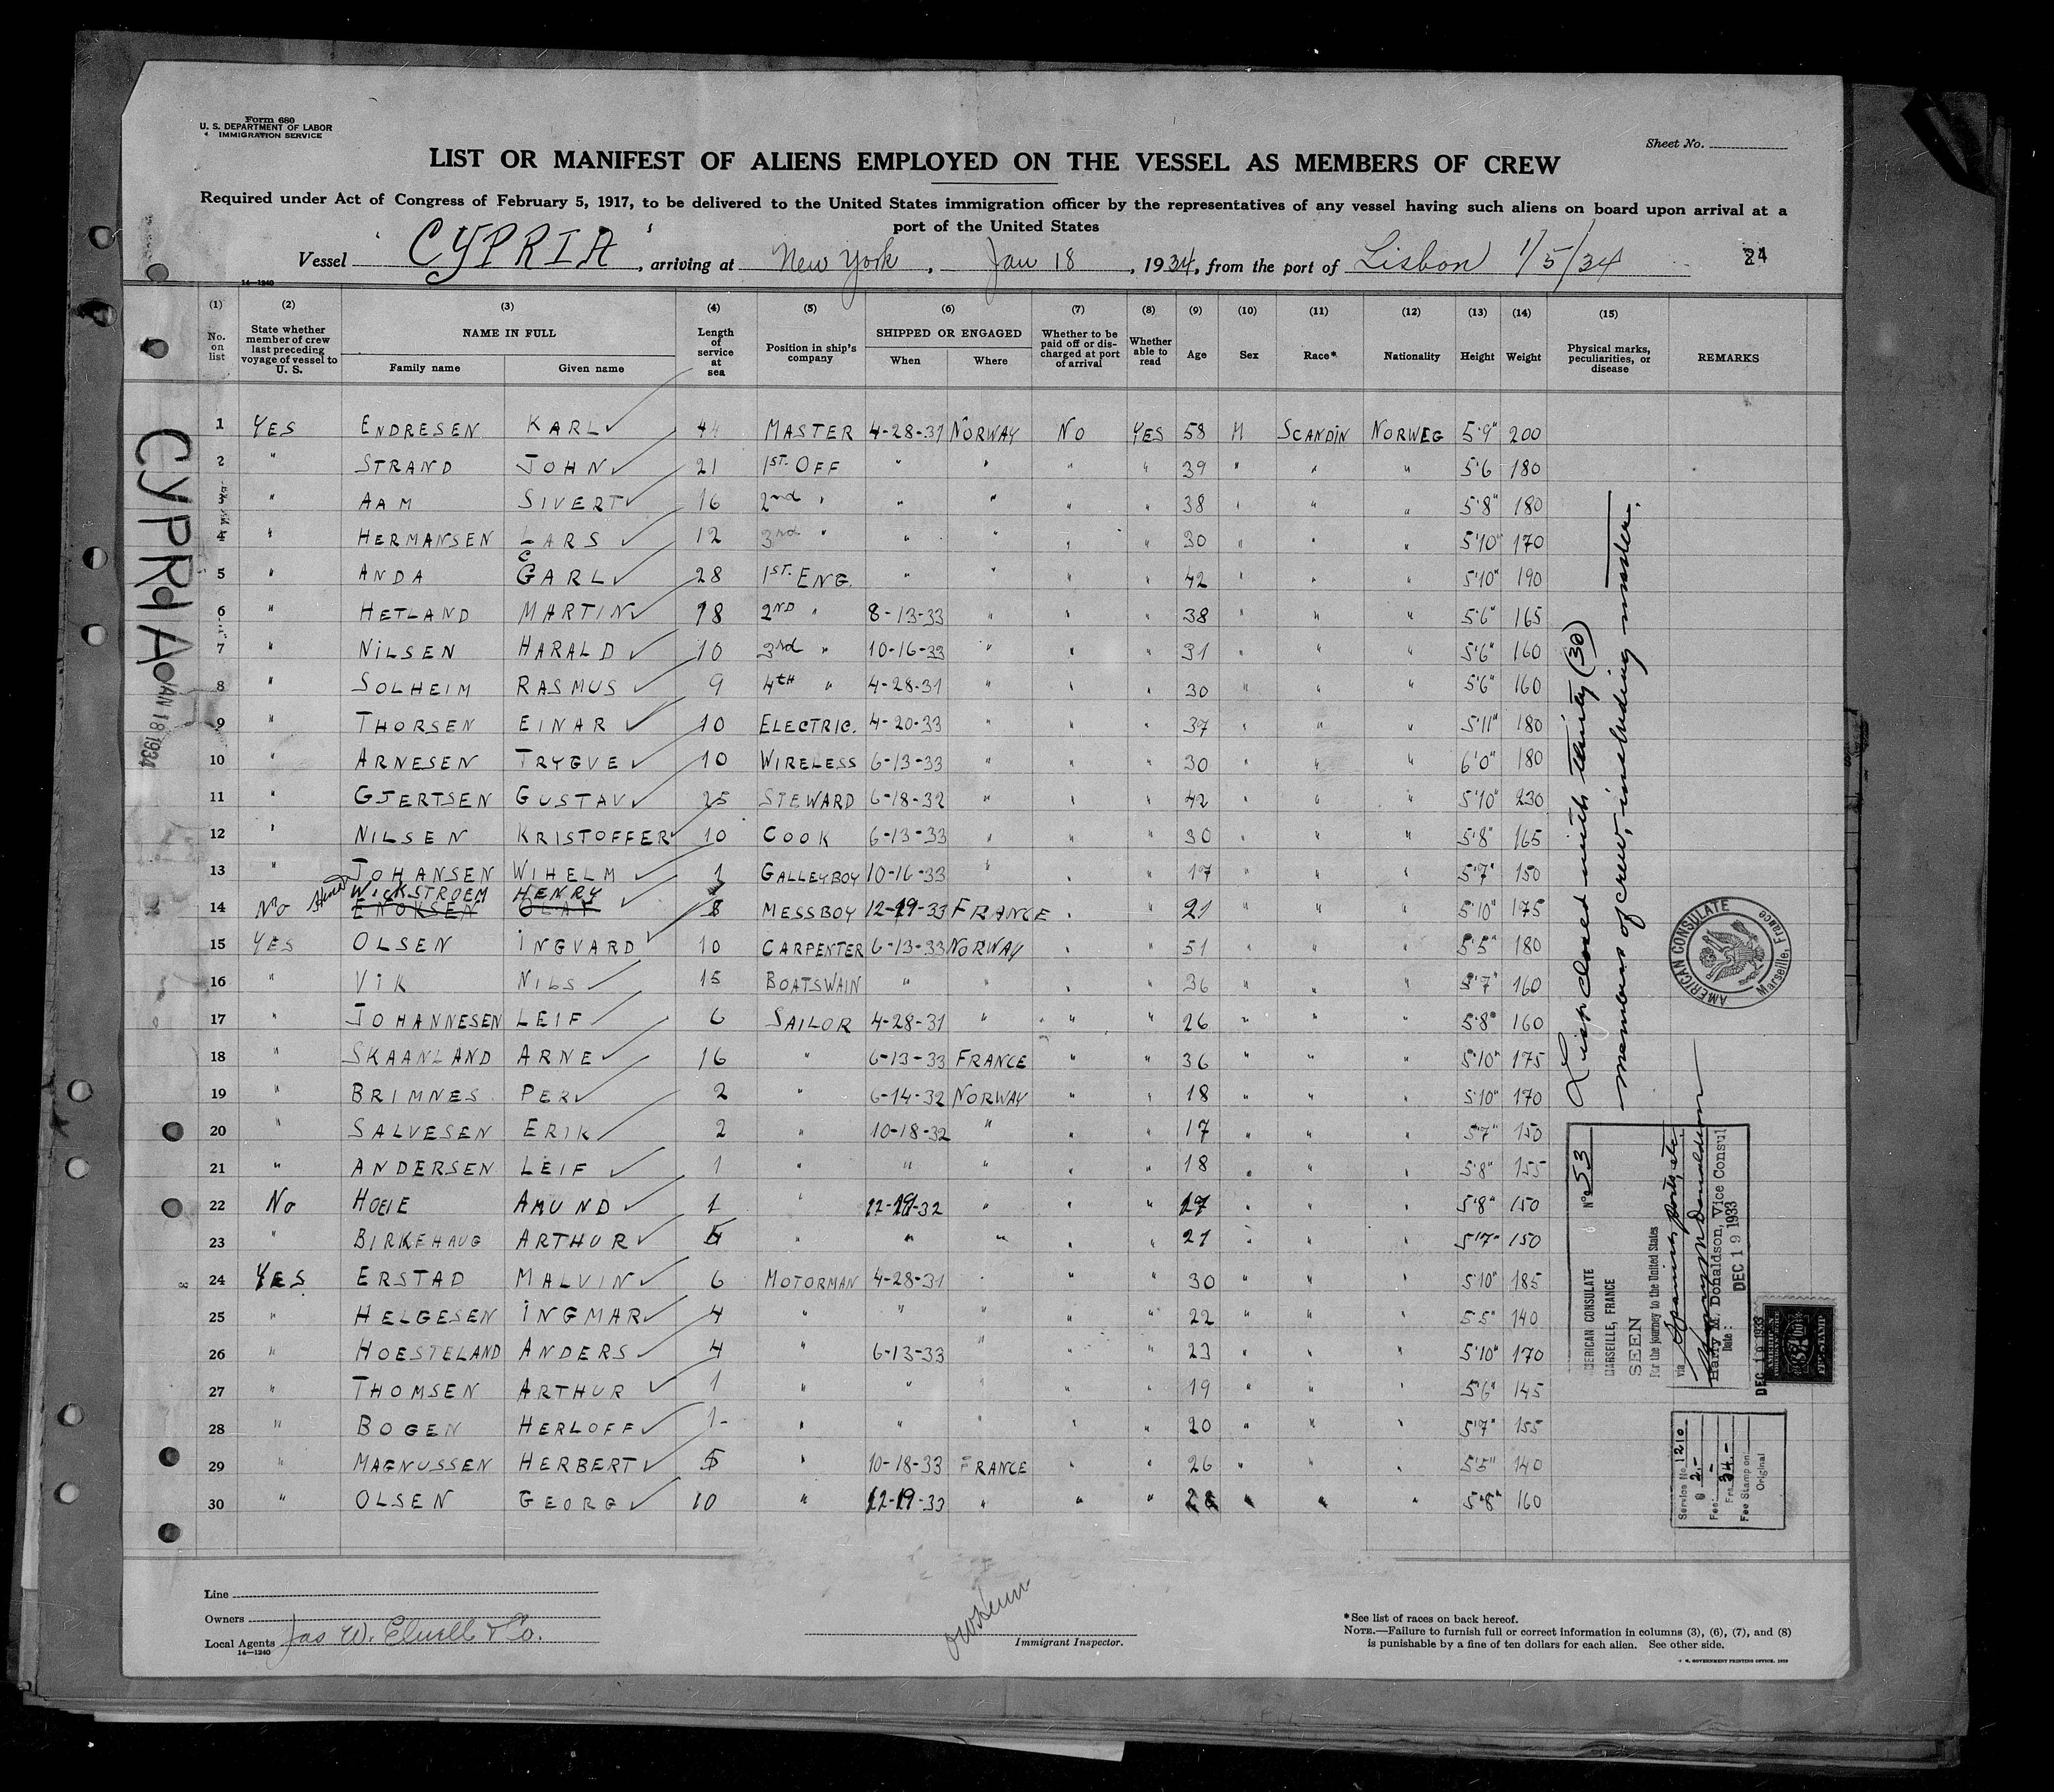 Form 680
U. S. DEPARTMENT OF LABOR
IMMIGRATION SERVICE
Sheet No.
LIST OR MANIFEST OF ALIENS EMPLOYED ON THE VESSEL AS MEMBERS OF CREW
Required under Act of Congress of February 5, 1917, to be delivered to the United States immigration officer by the representatives of any vessel having such aliens on board upon arrival at a
port of the United States
Vessel "CYPRIA", arriving at New York, Jan 18, 1934, from the port of Lisbon 1/5/34
24
14—1240
(1) (2) (3) (4) (5) (6) (7) (8) (9) (10) (11) (12) (13) (14) (15)
No. on list
State whether member of crew last preceding voyage of vessel to U. S.
NAME IN FULL
Family name
Given name
Length of service at sea
Position in ship's company
SHIPPED OR ENGAGED
When
Where
Whether to be paid off or discharged at port of arrival
Whether able to read
Age
Sex
Race*
Nationality
Height
Weight
Physical marks, peculiarities, or disease
REMARKS
1 YES ENDRESEN KARL 44 MASTER 4-28-31 NORWAY NO YES 58 M SCANDIN NORWEG 5'9" 200
2 " STRAND JOHN 21 1ST. OFF " " " " 39 " " " 5'6 180
3 " AAM SIVERT 16 2nd " " " " " 38 " " " 5'8" 180
4 " HERMANSEN LARS 12 3rd " " " " " 30 " " " 5'10" 170
5 " ANDA CARL 28 1ST. ENG. " " " " 42 " " " 5'10" 190
6 " HETLAND MARTIN 18 2ND " 8-13-33 " " " 38 " " " 5'6" 165
7 " NILSEN HARALD 10 3rd " 10-16-33 " " " 31 " " " 5'6" 160
8 " SOLHEIM RASMUS 9 4TH " 4-28-31 " " " 30 " " " 5'6" 160
9 " THORSEN EINAR 10 ELECTRIC. 4-20-33 " " " 37 " " " 5'11" 180
10 " ARNESEN TRYGVE 10 WIRELESS 6-13-33 " " " 30 " " " 6'0" 180
11 " GJERTSEN GUSTAV 25 STEWARD 6-18-32 " " " 42 " " " 5'10" 230
12 " NILSEN KRISTOFFER 10 COOK 6-13-33 " " " 30 " " " 5'8" 165
13 " JOHANSEN WIHELM 1 GALLEYBOY 10-16-33 " " " 17 " " " 5'7" 150
WICKSTROEM HENRY
14 No ENOKSEN OLAF MESSBOY 12-19-33 FRANCE " " 21 " " " 5'10" 175
15 YES OLSEN INGVARD 10 CARPENTER 6-13-33 NORWAY " " 51 " " " 5'5" 180
16 " VIK NILS 15 BOATSWAIN " " " " 36 " " " 5'7" 160
17 " JOHANNESEN LEIF 6 SAILOR 4-28-31 " " " 26 " " " 5'8" 160
18 " SKAANLAND ARNE 16 " 6-13-33 FRANCE " " 36 " " " 5'10" 175
19 " BRIMNES PER 2 " 6-14-32 NORWAY " " 18 " " " 5'10" 170
20 " SALVESEN ERIK 2 " 10-18-32 " " " 17 " " " 5'7" 150
21 " ANDERSEN LEIF 1 " " " " " 18 " " " 5'8" 155
22 No HOEIE AMUND 1 " 12-19-32 " " " 17 " " " 5'8" 150
23 " BIRKEHAUG ARTHUR " " " " " 21 " " " 5'7" 150
24 YES ERSTAD MALVIN 6 MOTORMAN 4-28-31 " " " 30 " " " 5'10" 185
25 " HELGESEN INGMAR 4 " " " " " 22 " " " 5'5" 140
26 " HOESTELAND ANDERS 4 " 6-13-33 " " " 23 " " " 5'10" 170
27 " THOMSEN ARTHUR 1 " " " " " 19 " " " 5'6" 145
28 " BOGEN HERLOFF 1 " " " " " 20 " " " 5'7" 155
29 " MAGNUSSEN HERBERT 5 " 10-18-33 FRANCE " " 26 " " " 5'5" 140
30 " OLSEN GEORG 10 " 12-19-33 " " " " " " 5'8" 160
CYPRIA
JAN 18 1934
List closed with thirty (30)
members of crew, including master.
AMERICAN CONSULATE
Marseille, France
No 53
AMERICAN CONSULATE
MARSEILLE, FRANCE
SEEN
For the journey to the United States
via Spanish ports, etc.
Harry M. Donaldson
Harry M. Donaldson, Vice Consul
Date: DEC 19 1933
DEC 19 1933
Service No. 1210
Fee: $ 2.-
Frs 34.-
Fee Stamp on
Original
Line
Owners
Local Agents Jas W. Elwell & Co.
14—1240
Immigrant Inspector.
*See list of races on back hereof.
NOTE.—Failure to furnish full or correct information in columns (3), (6), (7), and (8)
is punishable by a fine of ten dollars for each alien. See other side.
U. S. GOVERNMENT PRINTING OFFICE: 1929